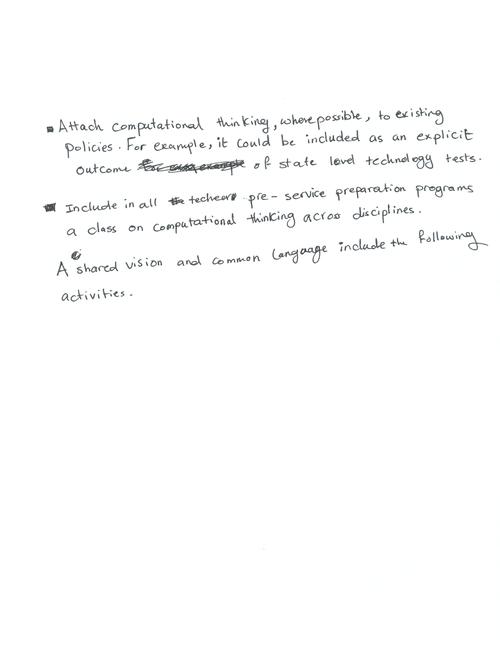 ▪ Attach computational thinking, where possible, to existing
policies. For example, it could be included as an explicit
outcome of state level technology tests.
▪ Include in all techears pre-service preparation programs
a class on computational thinking across disciplines.
A shared vision and common language include the following
activities.